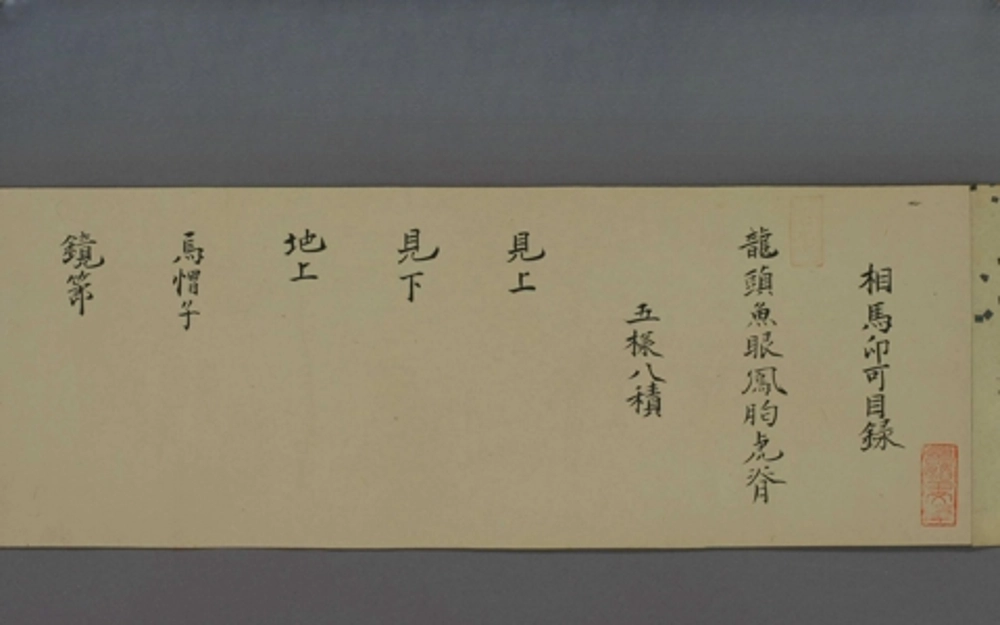 相馬印可目録
龍頭魚眼鳳胸虎脊
五樣八積
見上
見下
地上
馬帽子
鏡節